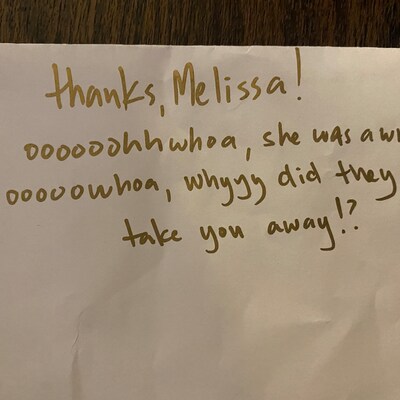 thanks, Melissa!
oooooohhwhoa, she was
ooooowhoa, whyyy did they
take you away!?